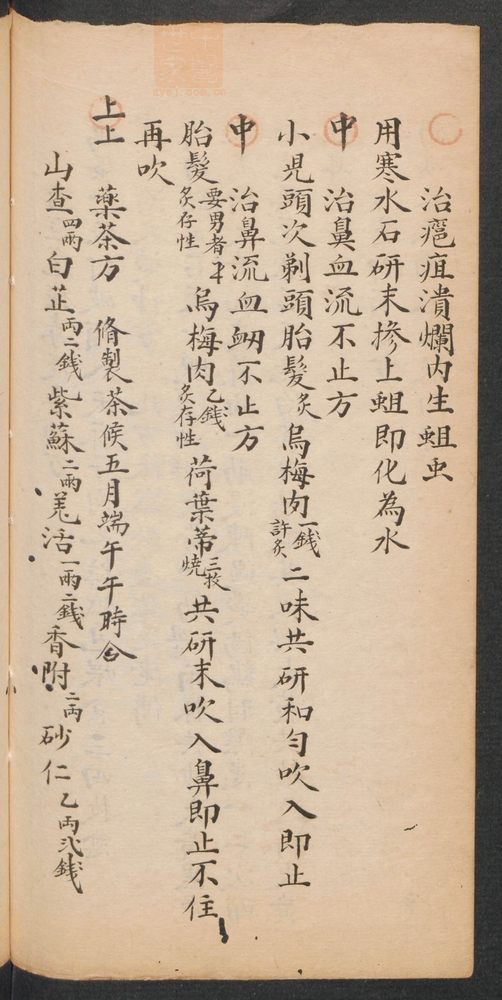 治瘡疽潰爛内生蛆虫
用寒水石研末摻上蛆即化為水
中 治鼻血流不止方
小児頭次剃頭胎髮炙烏梅肉一錢許炙二味共研和勻吹入即止
中 治鼻流血衂不止方
胎髮要男者炙存性烏梅肉乙錢炙存性荷葉蒂三枚燒共研末吹入鼻即止不住
再吹
上上 藥茶方 脩製茶候五月端午午時合
山查四兩白芷兩二錢紫蘇二兩羗活一兩二錢香附二両砂仁乙両弍錢